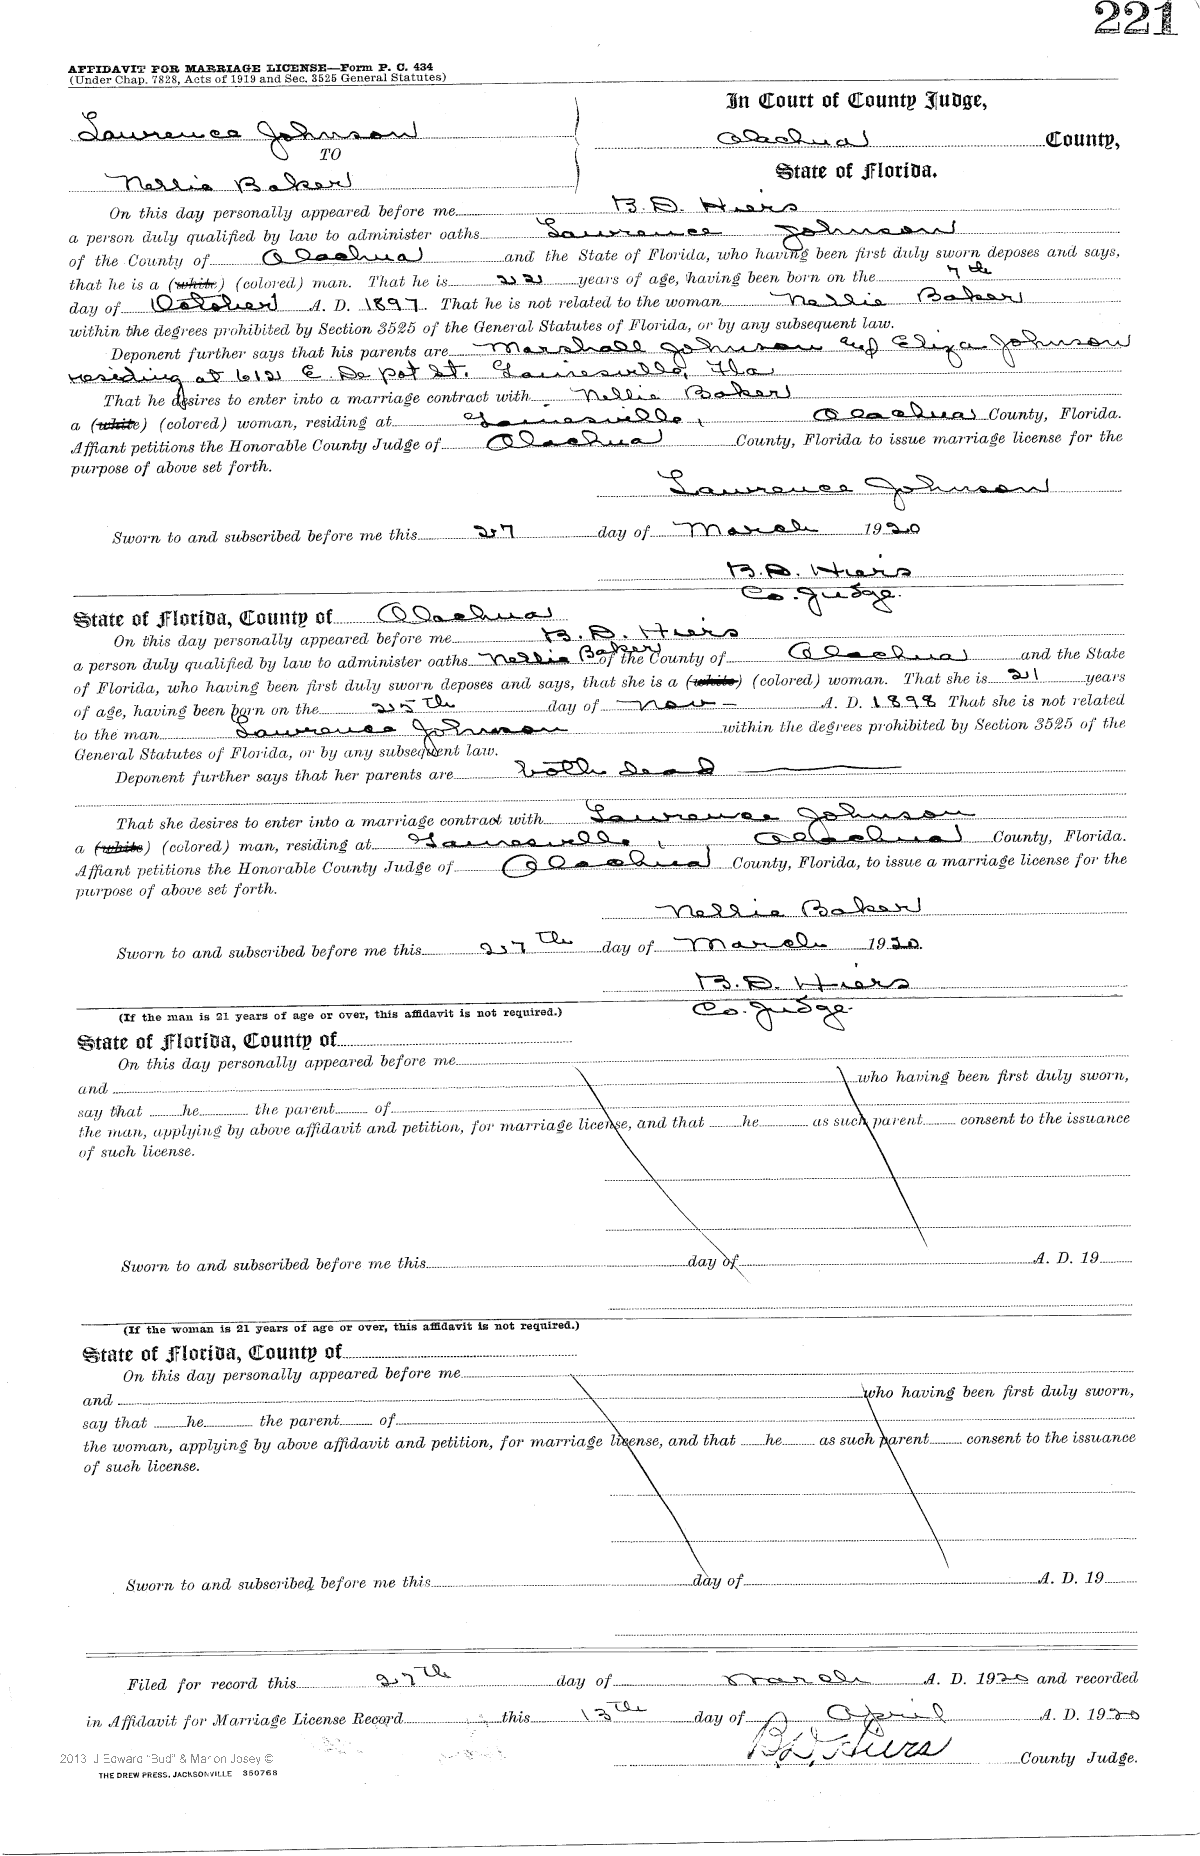 221
AFFIDAVIT FOR MARRIAGE LICENSE—Form P. C. 434
(Under Chap. 7828, Acts of 1919 and Sec. 3525 General Statutes)
In Court of County Judge,
Lawrence Johnson
TO
Alachua County,
Nellie Baker
State of Florida.
On this day personally appeared before me B. D. Hiers
a person duly qualified by law to administer oaths Lawrence Johnson
of the County of Alachua and the State of Florida, who having been first duly sworn deposes and says,
that he is a (white) (colored) man. That he is 22 years of age, having been born on the 7th
day of October A. D. 1897. That he is not related to the woman Nellie Baker
within the degrees prohibited by Section 3525 of the General Statutes of Florida, or by any subsequent law.
Deponent further says that his parents are Marshall Johnson and Eliza Johnson
residing at 612 E. Depot St. Gainesville, Fla
That he desires to enter into a marriage contract with Nellie Baker
a (white) (colored) woman, residing at Gainesville, Alachua County, Florida.
Affiant petitions the Honorable County Judge of Alachua County, Florida to issue marriage license for the
purpose of above set forth.
Lawrence Johnson
Sworn to and subscribed before me this 27 day of March 1920
B. D. Hiers
Co. Judge.
State of Florida, County of Alachua
On this day personally appeared before me B. D. Hiers
a person duly qualified by law to administer oaths Nellie Baker of the County of Alachua and the State
of Florida, who having been first duly sworn deposes and says, that she is a (white) (colored) woman. That she is 21 years
of age, having been born on the 25th day of Nov - A. D. 1898 That she is not related
to the man Lawrence Johnson within the degrees prohibited by Section 3525 of the
General Statutes of Florida, or by any subsequent law.
Deponent further says that her parents are both dead
That she desires to enter into a marriage contract with Lawrence Johnson
a (white) (colored) man, residing at Gainesville, Alachua County, Florida.
Affiant petitions the Honorable County Judge of Alachua County, Florida, to issue a marriage license for the
purpose of above set forth.
Nellie Baker
Sworn to and subscribed before me this 27th day of March 1920.
B. D. Hiers
Co. Judge.
(If the man is 21 years of age or over, this affidavit is not required.)
State of Florida, County of
On this day personally appeared before me
and who having been first duly sworn,
say that he the parent of
the man, applying by above affidavit and petition, for marriage license, and that he as such parent consent to the issuance
of such license.
Sworn to and subscribed before me this day of A. D. 19
(If the woman is 21 years of age or over, this affidavit is not required.)
State of Florida, County of
On this day personally appeared before me
and who having been first duly sworn,
say that he the parent of
the woman, applying by above affidavit and petition, for marriage license, and that he as such parent consent to the issuance
of such license.
Sworn to and subscribed before me this day of A. D. 19
Filed for record this 27th day of March A. D. 1920 and recorded
in Affidavit for Marriage License Record this 13th day of April A. D. 1920
B. D. Hiers County Judge.
2013 J Edward "Bud" & Marion Josey ©
THE DREW PRESS, JACKSONVILLE 350768